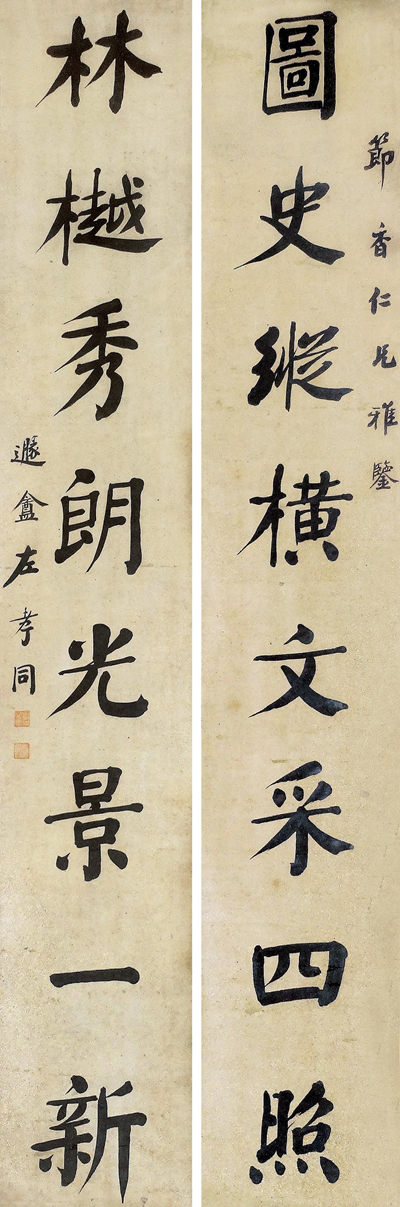 節香仁兄雅鑒
圖史縱橫文采四照
林樾秀朗光景一新
遯盦左孝同